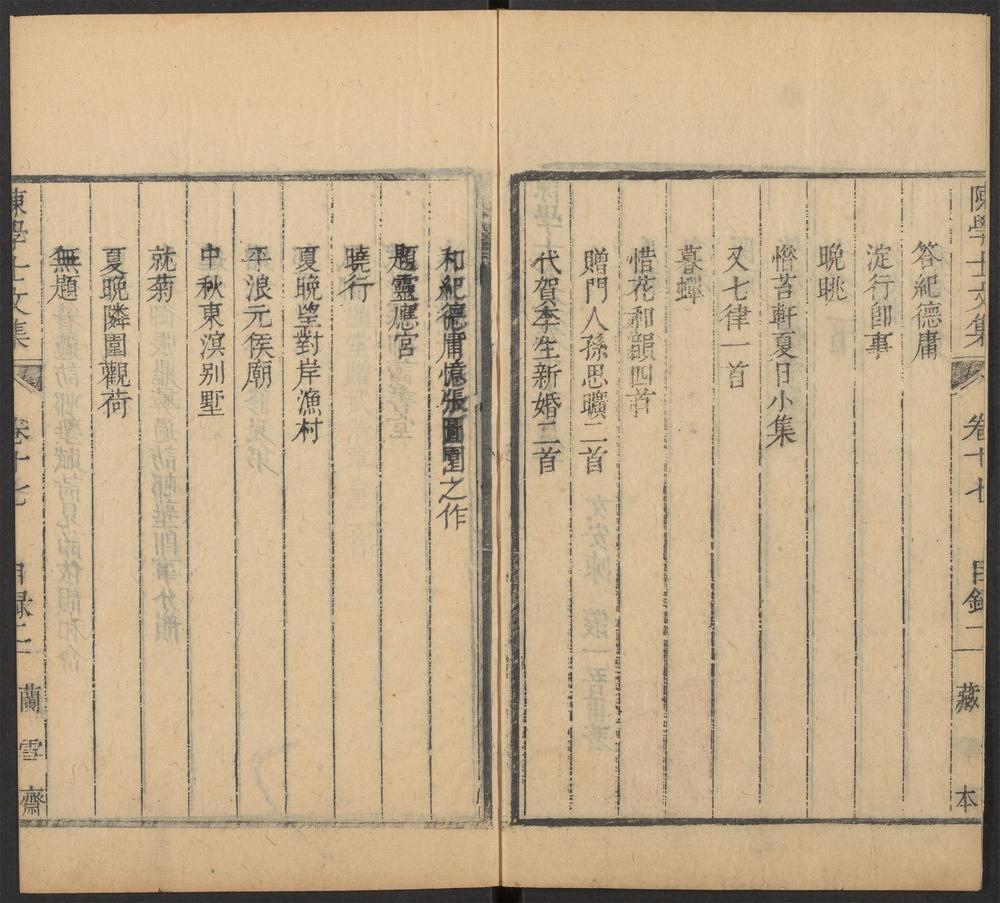 陳學士文集 卷十七 目錄二 藏 本
答紀德庸
淀行卽事
晚眺
憯苕軒夏日小集
又七律一首
暮蟬
惜花和韻四首
贈門人孫思曠二首
代賀李生新婚二首
和紀德庸憶張圃園之作
題靈應宮
曉行
夏晚望對岸漁村
平浪元侯廟
中秋東溟别墅
就菊
夏晚隣圍觀荷
無題
陳學士文集 卷十七 目録二 蘭雪齋